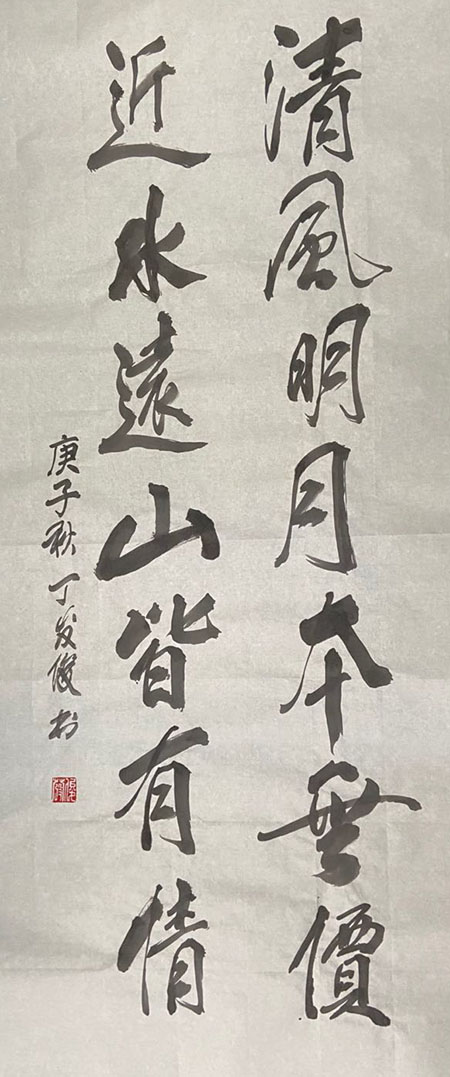 清風明月本無價
近水遠山皆有情
庚子秋丁发俊书